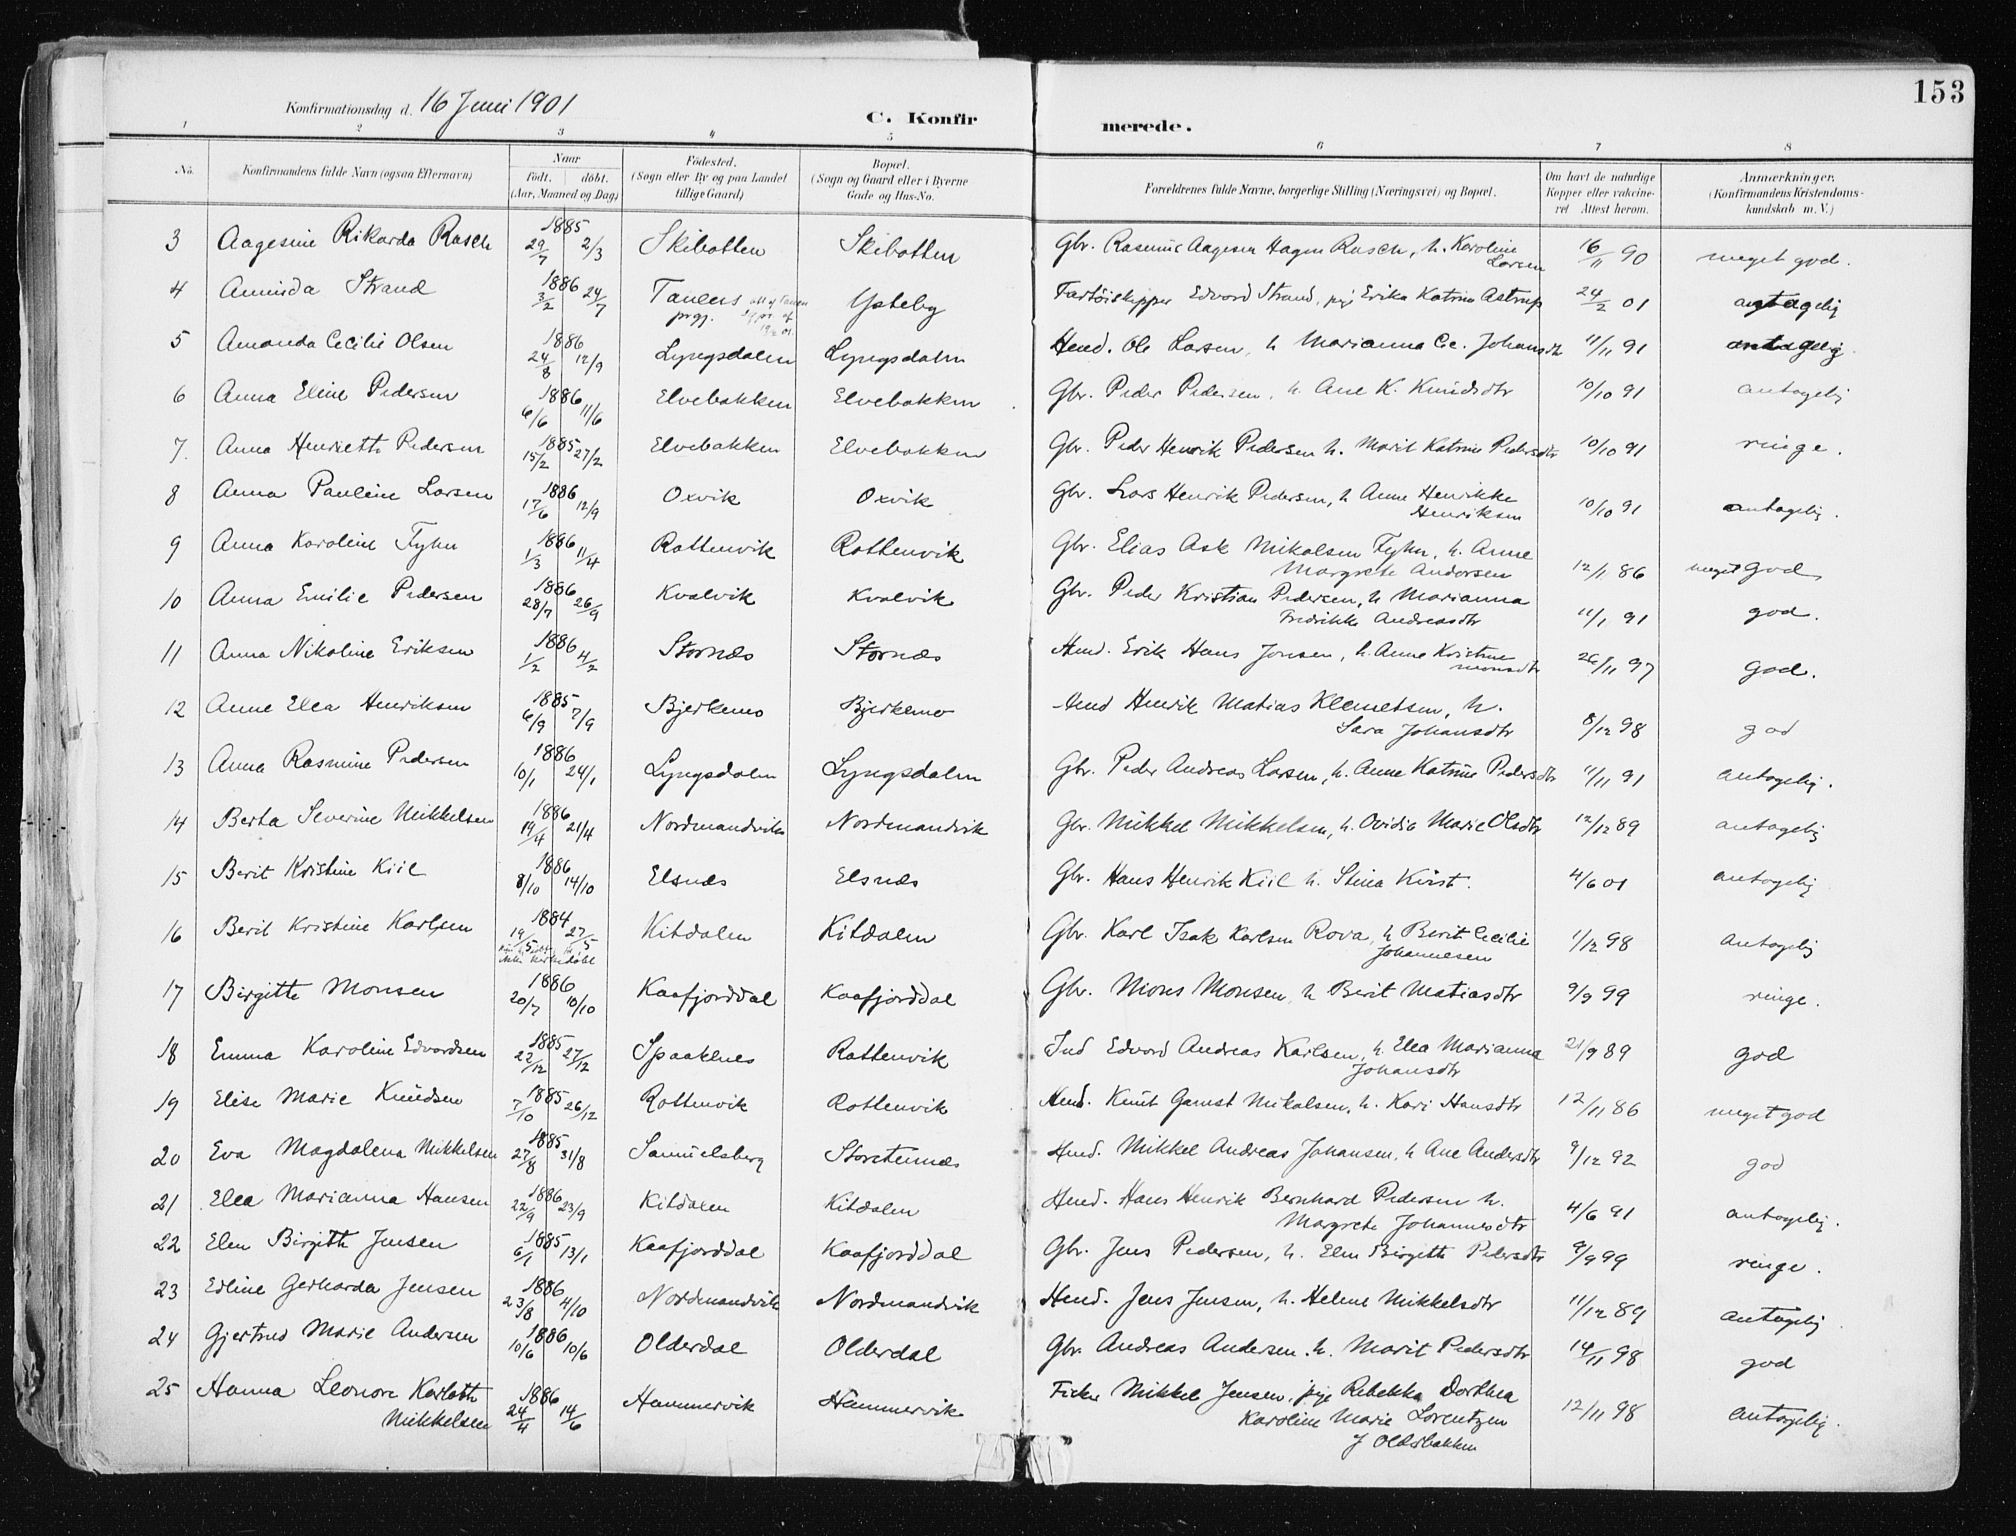 153
Konfirmationsdag d. 16 Juni 1901
C. Konfirmerede.
1 2 3 4 5 6 7 8
No. Konfirmandens fulde Navn (ogsaa Efternavn) Naar født. døbt. (Aar, Maaned og Dag) Fødested. (Sogn eller By og paa Landet tillige Gaard) Bopæl. (Sogn og Gaard eller i Byerne Gade og Hus-No. Forældrenes fulde Navne, borgerlige Stilling (Næringsvei) og Bopæl. Om havt de naturlige Kopper eller vaccineret Attest herom. Anmærkninger. (Konfirmandens Kristendomskundskab m. V.)
3 Aagesine Rikarda Rasch 1885 29/7 2/3 Skibotten Skibotten Gbr. Rasmus Aagesen Hagen Rasch, h. Karoline Larsen 16/11 90 meget god.
4 Strand 1886 3/2 24/7 Tanens prgj. Ysteby Fartöiskipper Edvard Strand, pige Erika Katrine Astrup 24/2 01 antagelig
5 Amanda Cecilie Olsen 1886 24/8 12/9 Lyngsdalen Lyngsdalen Hmd. Ole Larsen, h Marianna Ce. Johansdtr 11/11 91 antagelig.
6 Anna Eline Pedersen 1886 6/6 11/6 Elvebakken Elvebakken Gbr. Peder Pedersen, h. Ane K. Knudsdtr 10/10 91 antagelig
7. Anna Henriette Pedersen 1885 15/2 27/2 Elvebakken Elvebakken Gbr. Peder Henrik Pedersen h. Marit Katrine Pedersdtr 10/10 91 ringe.
8 Anna Pauline Larsen 1886 17/6 12/9 Oxvik Oxvik Gbr. Lars Henrik Pedersen, h Anne Henrikke Henriksen 10/10 91 antagelig.
9 Anna Karoline Fyhn 1886 1/3 11/4 Rottenvik Rottenvik Gbr. Elias Ask Mikalsen Fyhn, h. Anne Margrete Andersen 12/1 86 meget god
10 Anna Emilie Pedersen 1886 28/7 26/9 Kvalvik Kvalvik Gbr. Peder Kristian Pedersen, h Marianna Fredrikke Andreasdtr 11/1 91 god.
11 Anna Nikoline Eriksen 1886 1/2 4/2 Stornæs Stornæs Hmd. Erik Hans Jonsen, h. Anne Kristine Monsdtr 26/11 97 god.
12 Anne Elea Henriksen 1885 6/9 7/9 Bjerkemo Bjerkemo Hmd Henrik Matias Klemetsen, h. Sara Johansdtr 8/12 98 god
13 Anna Rasmine Pedersen 1886 10/1 24/1 Lyngsdalen Lyngsdalen Gbr. Peder Andreas Larsen, h. Anne Katrine Pedersdtr 11/11 91 antagelig.
14 Berta Severine Mikkelsen 1886 19/4 21/4 Nordmandviken Nordmandvik Gbr. Mikkel Mikkelsen, h. Ovidia Marie Olsdtr 12/12 89 antagelig
15 Berit Kristine Kiil 1886 8/10 14/10 Elsnæs Elsnæs Gbr. Hans Henrik Kiil h. Stina Kvist. 4/6 01 antagelig
16 Berit Kristine Karlsen 1884 19/5 27/5 Kitdalen Kitdalen Gbr. Karl Isak Karlsen Rova, h Berit Cecilie Johannesen 1/12 98 antagelig
17 Birgitte Monsen 1886 20/7 10/10 Kaafjorddal Kaafjorddal Gbr. Mons Monsen, h Berit Matiasdtr 9/9 99 ringe.
18 Emma Karoline Edvardsen 1885 22/12 27/12 Spaaknes Rottenvik Ind Edvard Andreas Karlsen, h. Elea Marianna Johansdtr 21/9 89 god
19 Elise Marie Knudsen 1885 7/10 26/12 Rottenvik Rottenvik Hmd. Knut Gamst Mikalsen, h. Kari Hansdtr 12/11 86 meget god
20 Eva Magdalena Mikkelsen 1885 27/8 31/8 Samuelsberg Storstennæs Hmd. Mikkel Andreas Johansen, h Ane Andersdtr 9/12 92 god
21 Elea Marianna Hansen 1886 22/9 23/9 Kitdalen Kitdalen Hmd. Hans Henrik Bernhard Pedersen h. Margrete Johannesdtr 4/6 91 antagelig.
22 Elen Birgitte Jensen 1885 6/1 13/1 Kaafjorddal Kaafjorddal Gbr. Jens Pedersen, h. Elen Birgitte Pedersdtr 9/9 99 ringe.
23 Edline Gerharda Jensen 1886 23/8 4/10 Nordmandvik Nordmandvik Hmd. Jens Jensen, h. Helene Mikkelsdtr 11/12 89 antagelig
24 Gjertrud Marie Andersen 1886 10/6 10/6 Olderdal Olderdal Gbr. Andreas Andersen. h. Marit Pedersdtr 14/11 98 god
25 Hanna Leonore Karlotte Mikkelsen 1886 24/4 14/6 Hammervik Hammervik Fisker Mikkel Jensen, pige Rebekka Dorthea Karoline Marie Lorentzen f Oldrbakken 12/11 98 antagelig.